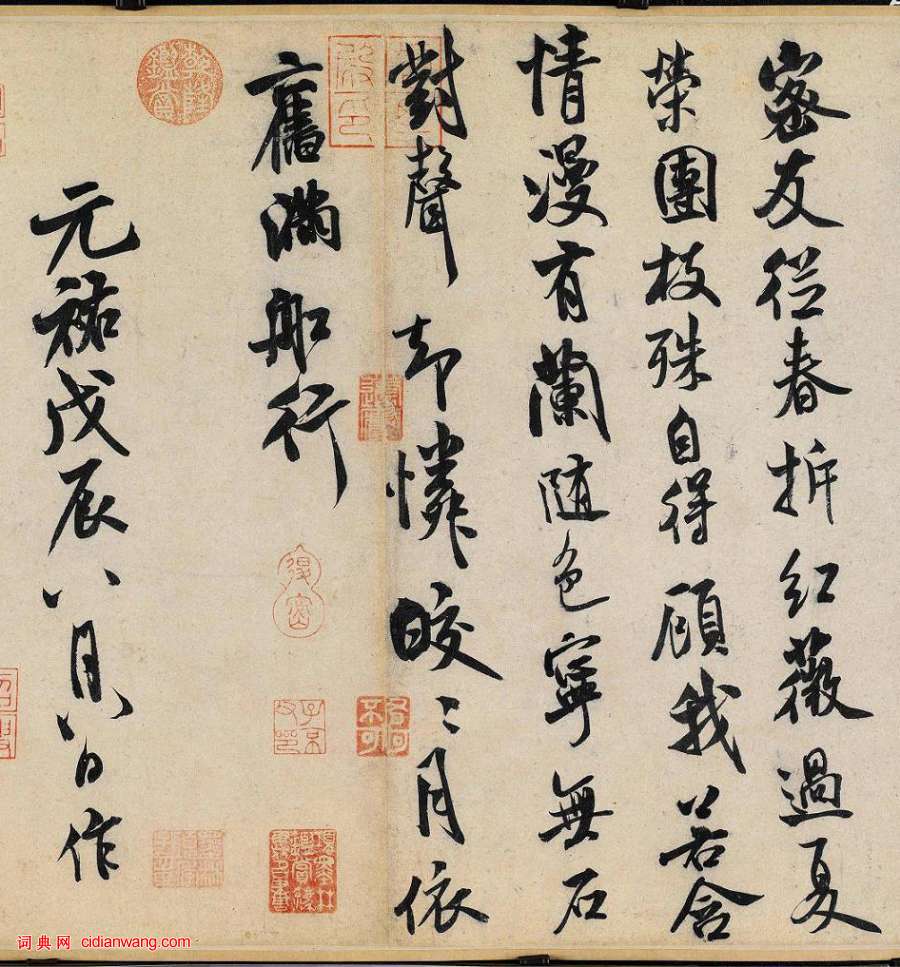 密友從春拆紅薇過夏
榮團枝殊自得顧我若含
情漫有蘭隨色寧無石
對聲却憐皎〻月依
舊滿船行
元祐戊辰八月八日作
乾隆鑑賞
词典网 cidianwang.com